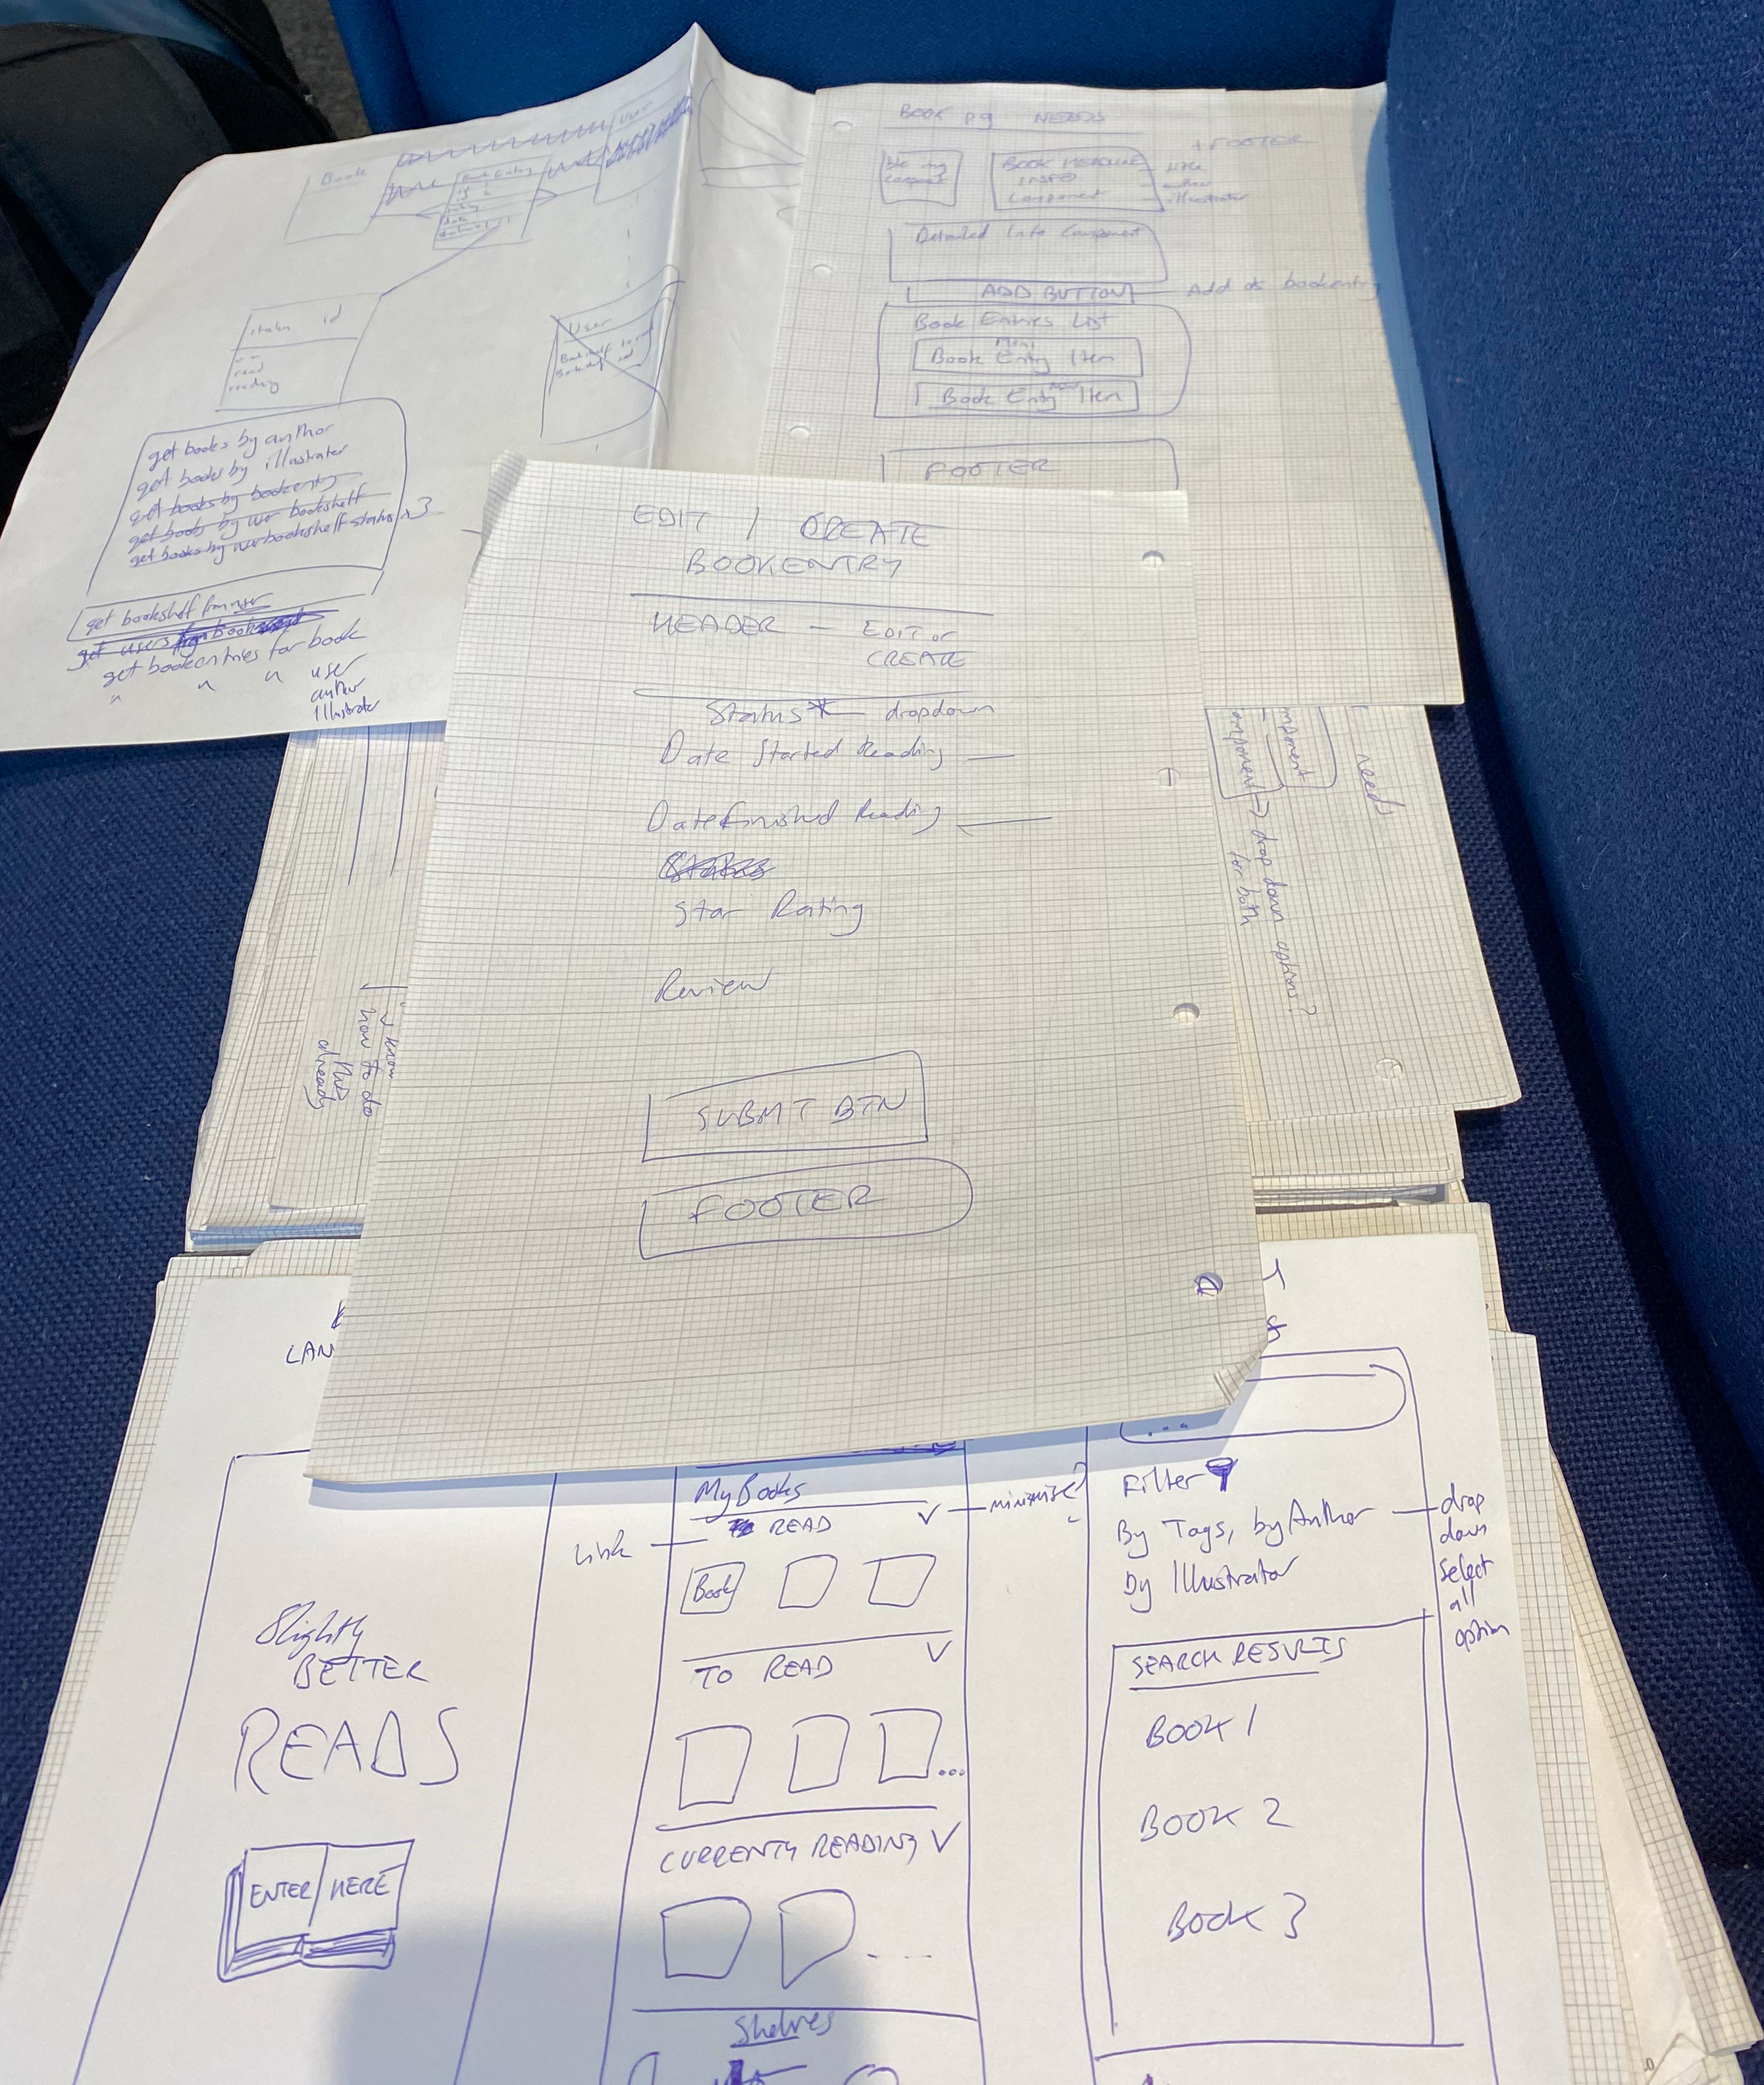 Book
User
Book Entry
status id
read
reading
User
get books by author
get books by illustrator
get books by bookentry
get books by user bookshelf
get books by user bookshelf status x 3
get bookshelf from user
get users from
get bookentries for book
" " " user
author
illustrator
BOOK pg NEEDS
+ FOOTER
BOOK HEADLINE
INFO
Component
title
author
illustrator
Detailed Info Component
ADD BUTTON
Add as bookentry
Book Entries List
Mini
Book Entry Item
Mini
Book Entry Item
FOOTER
EDIT / CREATE
BOOKENTRY
HEADER – EDIT or
CREATE
Status* – dropdown
Date Started Reading
Date Finished Reading
Star Rating
Review
SUBMIT BTN
FOOTER
needs
mponent
omponent → drop down options?
for both
I know
how to do
this
already
LAN
Slightly
BETTER
READS
ENTER HERE
My Books
READ
minimise?
Link
Book
TO READ
...
CURRENTLY READING
Shelves
...
Filter
By Tags, by Author
By Illustrator
drop
down
select
all
option
SEARCH RESULTS
BOOK 1
BOOK 2
BOOK 3